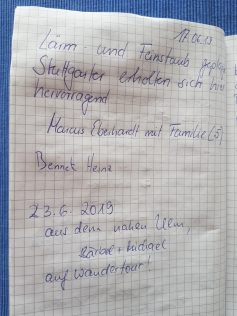 17.06.19
Lärm- und Feinstaub geplagte
Stuttgarter erholten sich hier
hervorragend
Marcus Eberhardt mit Familie (5)
Bennet Heinz
23.6.2019
aus dem nahen Ulm,
Bärbel + Michael
auf Wandertour!